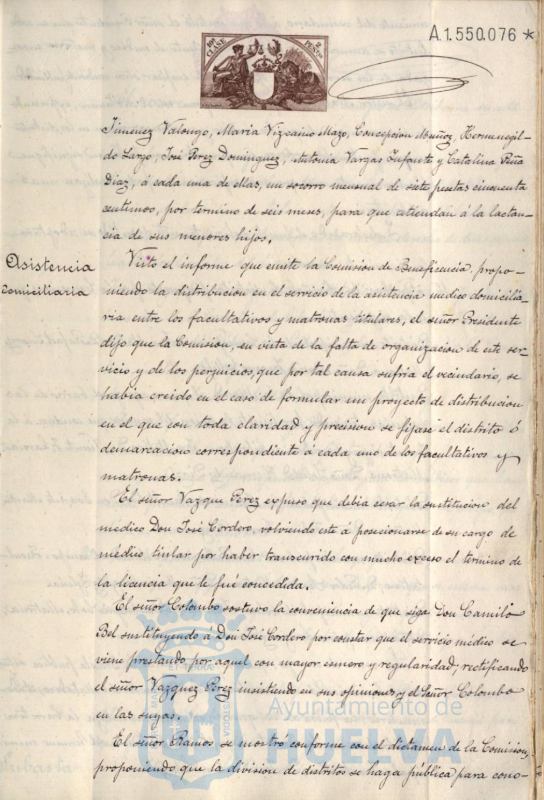 A.1.550.076 *
10ª CLASE
2 PESETAS
Jimenez Valongo, Maria Vizcaino Mazo, Concepcion Muñoz, Hermenegil-
do Largo, José Perez Dominguez, Antonia Vargas Infante y Catalina Peña
Diaz, á cada una de ellas, un socorro mensual de siete pesetas cincuenta
centimos, por termino de seis meses, para que atiendan á la lactan-
cia de sus menores hijos.
Asistencia
domiciliaria
Visto el informe que emite la Comision de Beneficencia propo-
niendo la distribucion en el servicio de la asistencia medico domicilia-
ria entre los facultativos y matronas titulares, el señor Presidente
dijo que la Comision, en vista de la falta de organizacion de este ser-
vicio y de los perjuicios, que por tal causa sufria el vecindario, se
habia creido en el caso de formular un proyecto de distribucion
en el que con toda claridad y precision se fijase el distrito ó
demarcacion correspondiente á cada uno de los facultativos y
matronas.
El señor Vazque Perez expuso que debia cesar la sustitucion del
medico Don José Cordero, volviendo este á posecionarse de su cargo de
medico titular por haber transcurido con mucho exceso el termino de
la licencia que le fué concedida.
El señor Colombo sostuvo la conveniencia de que siga Don Camilo
Bel sustituyendo á Don José Cordero por constar que el servicio médico se
viene prestando por aquel con mayor esmero y regularidad; rectificando
el señor Vazquez Perez insistiendo en sus opiniones y el Señor Colombo
en las suyas.
El señor Ramos se mostró conforme con el dictamen de la Comision,
proponiendo que la division de distritos se haga pública para cono-
Ayuntamiento de
HUELVA